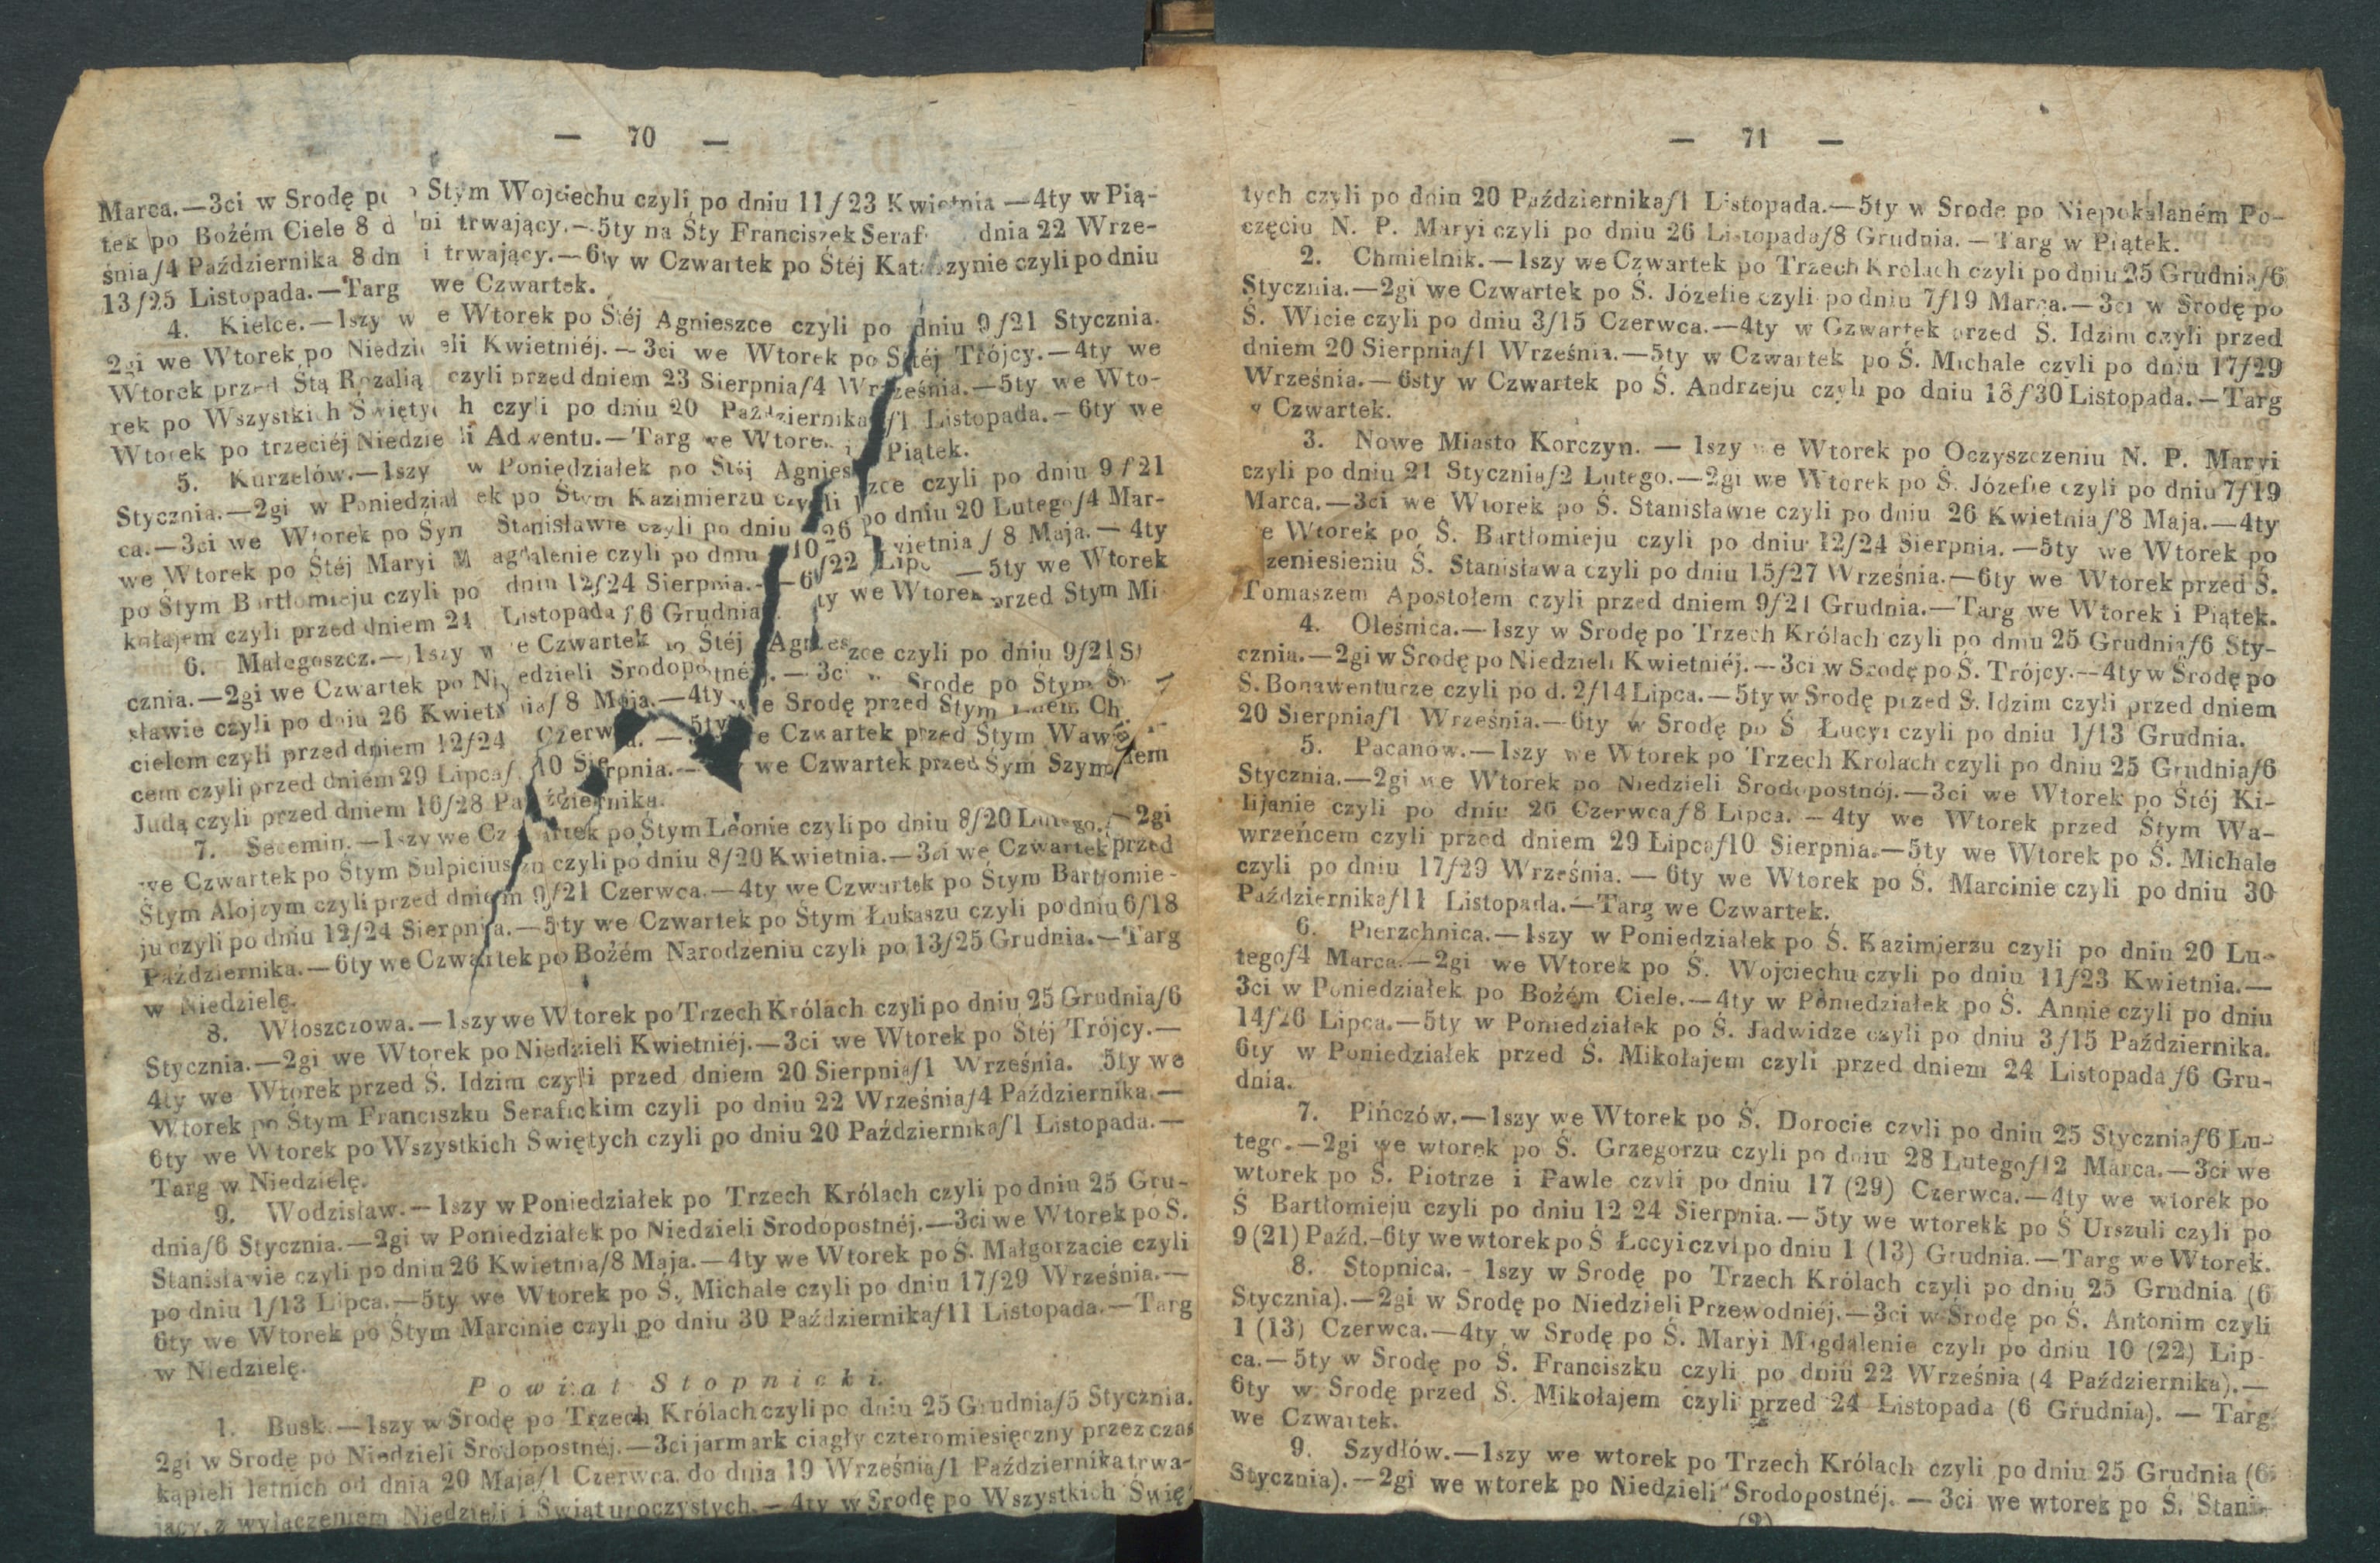 — 70 —
Marca.—3ci w Srodę po Stym Wojciechu czyli po dniu 11/23 Kwietnia —4ty w Pią-
tek po Bożém Ciele 8 dni trwający.—5ty na Sty Franciszek Seraf dnia 22 Wrze-
śnia/4 Października 8 dni trwający.—6ty w Czwartek po Stéj Katarzynie czyli po dniu
13/25 Listopada.—Targ we Czwartek.
4. Kielce.—1szy we Wtorek po Stéj Agnieszce czyli po dniu 9/21 Stycznia.
2gi we Wtorek po Niedzieli Kwietniéj.—3ci we Wtorek po Stéj Trójcy.—4ty we
Wtorek przed Stą Rozalią czyli przed dniem 23 Sierpnia/4 Września.—5ty we Wto-
rek po Wszystkich Swiętych czyli po dniu 20 Października/1 Listopada.—6ty we
Wtorek po trzeciéj Niedzieli Adwentu.—Targ we Wtorek i Piątek.
5. Kurzelów.—1szy w Poniedziałek po Stéj Agnieszce czyli po dniu 9/21
Stycznia.—2gi w Poniedziałek po Stym Kazimierzu czyli po dniu 20 Lutego/4 Mar-
ca.—3ci we Wtorek po Stanisławie czyli po dniu 26 Kwietnia / 8 Maja.—4ty
we Wtorek po Stéj Maryi Magdalenie czyli po dniu 10/22 Lipc —5ty we Wtorek
po Stym Bartłomieju czyli po dniu 12/24 Sierpnia.—6ty we Wtorek przed Stym Mi-
kołajem czyli przed dniem 24 Listopada / 6 Grudnia
6. Małogoszcz.—1szy we Czwartek po Stéj Agnieszce czyli po dniu 9/21 S
cznia.—2gi we Czwartek po Niedzieli Srodopostnéj.—3c Srodę po Stym S
sławie czyli po dniu 26 Kwietnia/ 8 Maja.—4ty we Srodę przed Stym Ch
cielem czyli przed dniem 12/24 Czerwca.—5ty we Czwartek przed Stym Waw
cem czyli przed dniem 29 Lipca/ 10 Sierpnia.— we Czwartek przed Sym Szym
Judą czyli przed dniem 16/28 Października.
7. Secemin.—1szy we Czwartek po Stym Leonie czyli po dniu 8/20 Lutego.—2gi
we Czwartek po Stym Sulpiciuszu czyli po dniu 8/20 Kwietnia.—3ci we Czwartek przed
Stym Alojzym czyli przed dniem 9/21 Czerwca.—4ty we Czwartek po Stym Bartłomie-
ju czyli po dniu 12/24 Sierpnia.—5ty we Czwartek po Stym Łukaszu czyli po dniu 6/18
Października.—6ty we Czwartek po Bożém Narodzeniu czyli po 13/25 Grudnia.—Targ
w Niedzielę.
8. Włoszczowa.—1szy we Wtorek po Trzech Królach czyli po dniu 25 Grudnia/6
Stycznia.—2gi we Wtorek po Niedzieli Kwietniéj.—3ci we Wtorek po Stéj Trójcy.—
4ty we Wtorek przed S. Idzim czyli przed dniem 20 Sierpnia/1 Września. 5ty we
Wtorek po Stym Franciszku Serafickim czyli po dniu 22 Września/4 Października.—
6ty we Wtorek po Wszystkich Swiętych czyli po dniu 20 Października/1 Listopada.—
Targ w Niedzielę.
9. Wodzisław.—1szy w Poniedziałek po Trzech Królach czyli po dniu 25 Gru-
dnia/6 Stycznia.—2gi w Poniedziałek po Niedzieli Srodopostnéj.—3ci we Wtorek po S.
Stanisławie czyli po dniu 26 Kwietnia/8 Maja.—4ty we Wtorek po S. Małgorzacie czyli
po dniu 1/13 Lipca.—5ty we Wtorek po S. Michale czyli po dniu 17/29 Września.—
6ty we Wtorek po Stym Marcinie czyli po dniu 30 Października/11 Listopada.—Targ
w Niedzielę.
Powiat Stopnicki.
1. Busk.—1szy w Srodę po Trzech Królach czyli po dniu 25 Grudnia/5 Stycznia.
2gi w Srodę po Niedzieli Srodopostnéj.—3ci jarmark ciągły czteromiesięczny przez czas
kąpieli letnich od dnia 20 Maja/1 Czerwca do dnia 19 Września/1 Października trwa-
jący, z wyłączeniem Niedzieli i Swiąt uroczystych.—4ty w Srodę po Wszystkich Swię-
— 71 —
tych czyli po dniu 20 Października/1 Listopada.—5ty w Srodę po Niepokalaném Po-
częciu N. P. Maryi czyli po dniu 26 Listopada/8 Grudnia.—Targ w Piątek.
2. Chmielnik.—1szy we Czwartek po Trzech Królach czyli po dniu 25 Grudnia/6
Stycznia.—2gi we Czwartek po S. Józefie czyli po dniu 7/19 Marca.—3ci w Srodę po
Ś. Wicie czyli po dniu 3/15 Czerwca.—4ty w Czwartek przed S. Idzim czyli przed
dniem 20 Sierpnia/1 Września.—5ty w Czwartek po Ś. Michale czyli po dniu 17/29
Września.—6sty w Czwartek po Ś. Andrzeju czyli po dniu 18/30 Listopada.—Targ
w Czwartek.
3. Nowe Miasto Korczyn.—1szy we Wtorek po Oczyszczeniu N. P. Maryi
czyli po dniu 21 Stycznia/2 Lutego.—2gi we Wtorek po Ś. Józefie czyli po dniu 7/19
Marca.—3ci we Wtorek po Ś. Stanisławie czyli po dniu 26 Kwietnia/8 Maja.—4ty
e Wtorek po Ś. Bartłomieju czyli po dniu 12/24 Sierpnia.—5ty we Wtorek po
zeniesieniu Ś. Stanisława czyli po dniu 15/27 Września.—6ty we Wtorek przed Ś.
Tomaszem Apostołem czyli przed dniem 9/21 Grudnia.—Targ we Wtorek i Piątek.
4. Oleśnica.—1szy w Srodę po Trzech Królach czyli po dniu 25 Grudnia/6 Sty-
cznia.—2gi w Srodę po Niedzieli Kwietniéj.—3ci w Srodę po Ś. Trójcy.—4ty w Srodę po
S. Bonawenturze czyli po d. 2/14 Lipca.—5ty w Srodę przed S. Idzim czyli przed dniem
20 Sierpnia/1 Września.—6ty w Srodę po Ś Łucyi czyli po dniu 1/13 Grudnia.
5. Pacanów.—1szy we Wtorek po Trzech Krolach czyli po dniu 25 Grudnia/6
Stycznia.—2gi we Wtorek po Niedzieli Srodopostnój.—3ci we Wtorek po Stéj Ki-
lijanie czyli po dniu 26 Czerwca/8 Lipca.—4ty we Wtorek przed Stym Wa-
wrzeńcem czyli przed dniem 29 Lipca/10 Sierpnia.—5ty we Wtorek po Ś. Michale
czyli po dniu 17/29 Września.—6ty we Wtorek po Ś. Marcinie czyli po dniu 30
Października/11 Listopada.—Targ we Czwartek.
6. Pierzchnica.—1szy w Poniedziałek po Ś. Kazimierzu czyli po dniu 20 Lu-
tego/4 Marca.—2gi we Wtorek po Ś. Wojciechu czyli po dniu 11/23 Kwietnia.—
3ci w Poniedziałek po Bożém Ciele.—4ty w Poniedziałek po Ś. Annie czyli po dniu
14/26 Lipca.—5ty w Poniedziałek po Ś. Jadwidze czyli po dniu 3/15 Października.
6ty w Poniedziałek przed Ś. Mikołajem czyli przed dniem 24 Listopada/6 Gru-
dnia.
7. Pińczów.—1szy we Wtorek po Ś. Dorocie czyli po dniu 25 Stycznia/6 Lu-
tego.—2gi we wtorek po Ś. Grzegorzu czyli po dniu 28 Lutego/12 Marca.—3ci we
wtorek po Ś. Piotrze i Pawle czyli po dniu 17 (29) Czerwca.—4ty we wtorek po
Ś Bartłomieju czyli po dniu 12 24 Sierpnia.—5ty we wtorekk po Ś Urszuli czyli po
9 (21) Paźd.-6ty we wtorek po Ś Łccyi czyl po dniu 1 (13) Grudnia.—Targ we Wtorek.
8. Stopnica. - 1szy w Srodę po Trzech Królach czyli po dniu 25 Grudnia (6
Stycznia).—2gi w Srodę po Niedzieli Przewodniéj.—3ci w Srodę po Ś. Antonim czyli
1 (13) Czerwca.—4ty w Srodę po Ś. Maryi Magdalenie czyli po dniu 10 (22) Lip-
ca.—5ty w Srodę po Ś. Franciszku czyli po dniu 22 Września (4 Października).—
6ty w Srodę przed Ś. Mikołajem czyli przed 24 Listopada (6 Grudnia).—Targ
we Czwartek.
9. Szydłów.—1szy we wtorek po Trzech Królach czyli po dniu 25 Grudnia (6
Stycznia).—2gi we wtorek po Niedzieli Srodopostnéj.—3ci we wtorek po Ś. Stani-